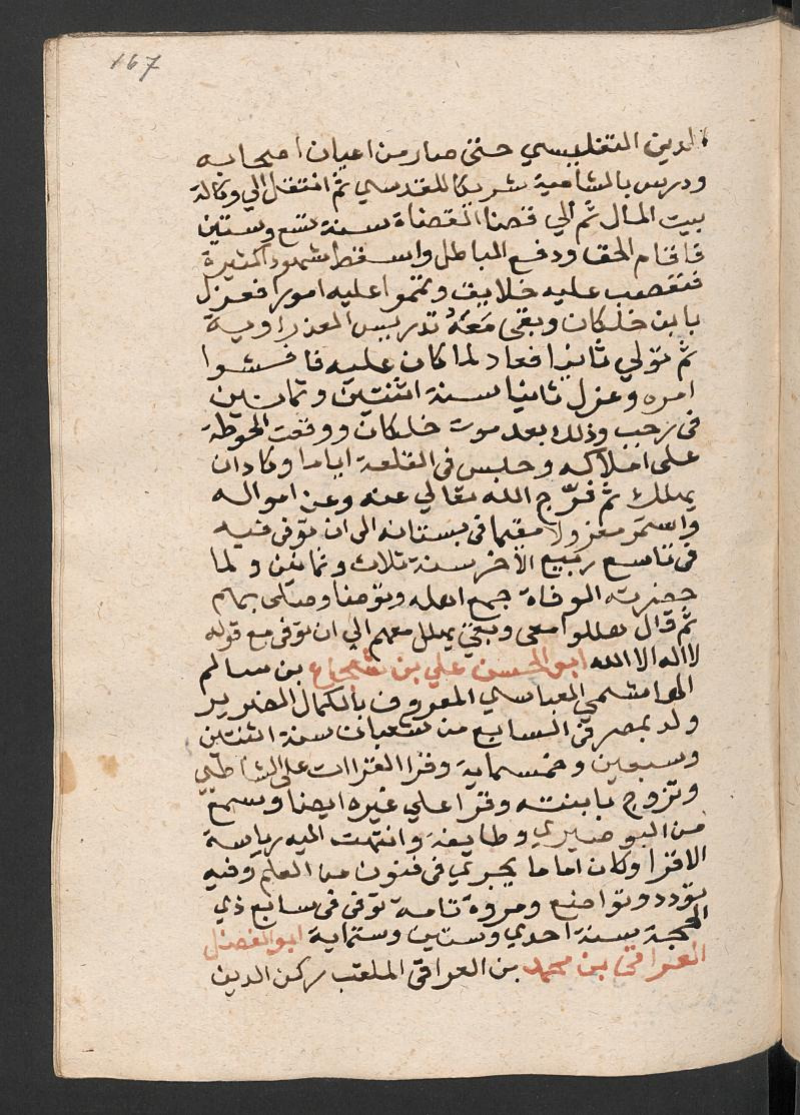 167
الدين التفليسي حتى صار من اعيان اصحابه
ودرس بالشامية شريكا للمقدسي ثم انتقل الي وكالة
بيت المال ثم الي قضا القضاة سنة تسع وستين
فاقام الحق ودفع الباطل واسقط شهودا كثيرة
فتعصب عليه خلايق ونموا عليه امورا فعزل
بابن خلكان وبقى معه تدريس العذراوية
ثم تولي ثانيا فعاد لما كان عليه فافشوا
امره وعزل ثانيا سنة اثنتين وثمانين
فى رجب وذلك بعد موت خلكان ووقعت الحوطة
على املاكه وحبس فى القلعة اياما وكاد ان
يهلك ثم فرّج الله تعالي عنه وعن امواله
واستمر معزولا مقيما فى بستانه الى ان توفى فيه
فى تاسع ربيع الاخر سنة ثلاث وثمانين ولما
حضرته الوفاة جمع اهله وتوضا وصلى بهم
ثم قال هللوا معى وبقى يهلل معهم الي ان توفى مع قوله
لا اله الا الله ابو الحسن علي بن شجاع بن سالم
الهاشمي العباسي المعروف بالكمال الضرير
ولد بمصر فى السابع من شعبان سنة اثنتين
وسبعين وخمسماية وقرا القراات على الشاطبي
وتزوج بابنته وقرا علي غيره ايضا وسمع
من البوصيري وطايفة وانتهت اليه رياسة
الاقرا وكان اماما يجري فى فنون من العلم وفيه
تودد وتواضع ومروة تامة توفى فى سابع ذي
الحجة سنة احدي وستين وستماية ابو الفضل
العراقى بن محمد بن العراقى الملقب ركن الدين